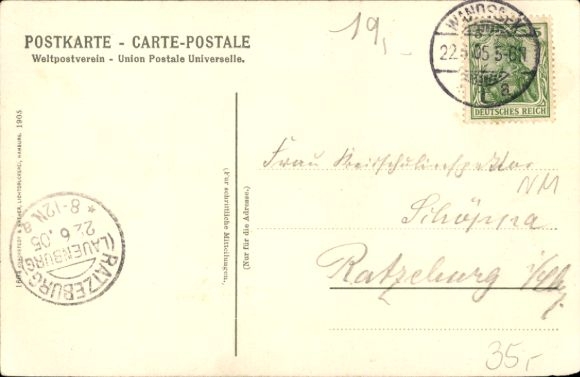 POSTKARTE - CARTE-POSTALE
Weltpostverein - Union Postale Universelle.
19,-
WANDSBEK
22.6.05 5-6N
a
DEUTSCHES REICH
1905
(Für schriftliche Mitteilungen.)
(Nur für die Adresse.)
Frau Kreisschulinspektor
Schöppa
Ratzeburg
NM
RATZEBURG
(LAUENBURG)
22.6.05
* 8-12N. a
35,-